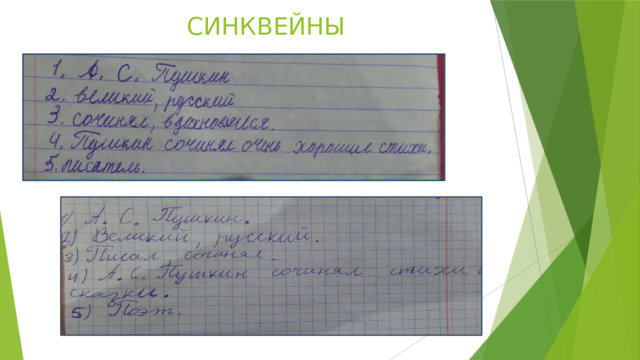 СИНКВЕЙНЫ
1. А. С. Пушкин
2. великий, русский
3. сочинял, вдохновлялся.
4. Пушкин сочинял очень хорошие стихи.
5. писатель.
1) А. С. Пушкин.
2) Великий, русский.
3) Писал, сочинял.
4) А. С. Пушкин сочинял стихи и
сказки.
5) Поэт.